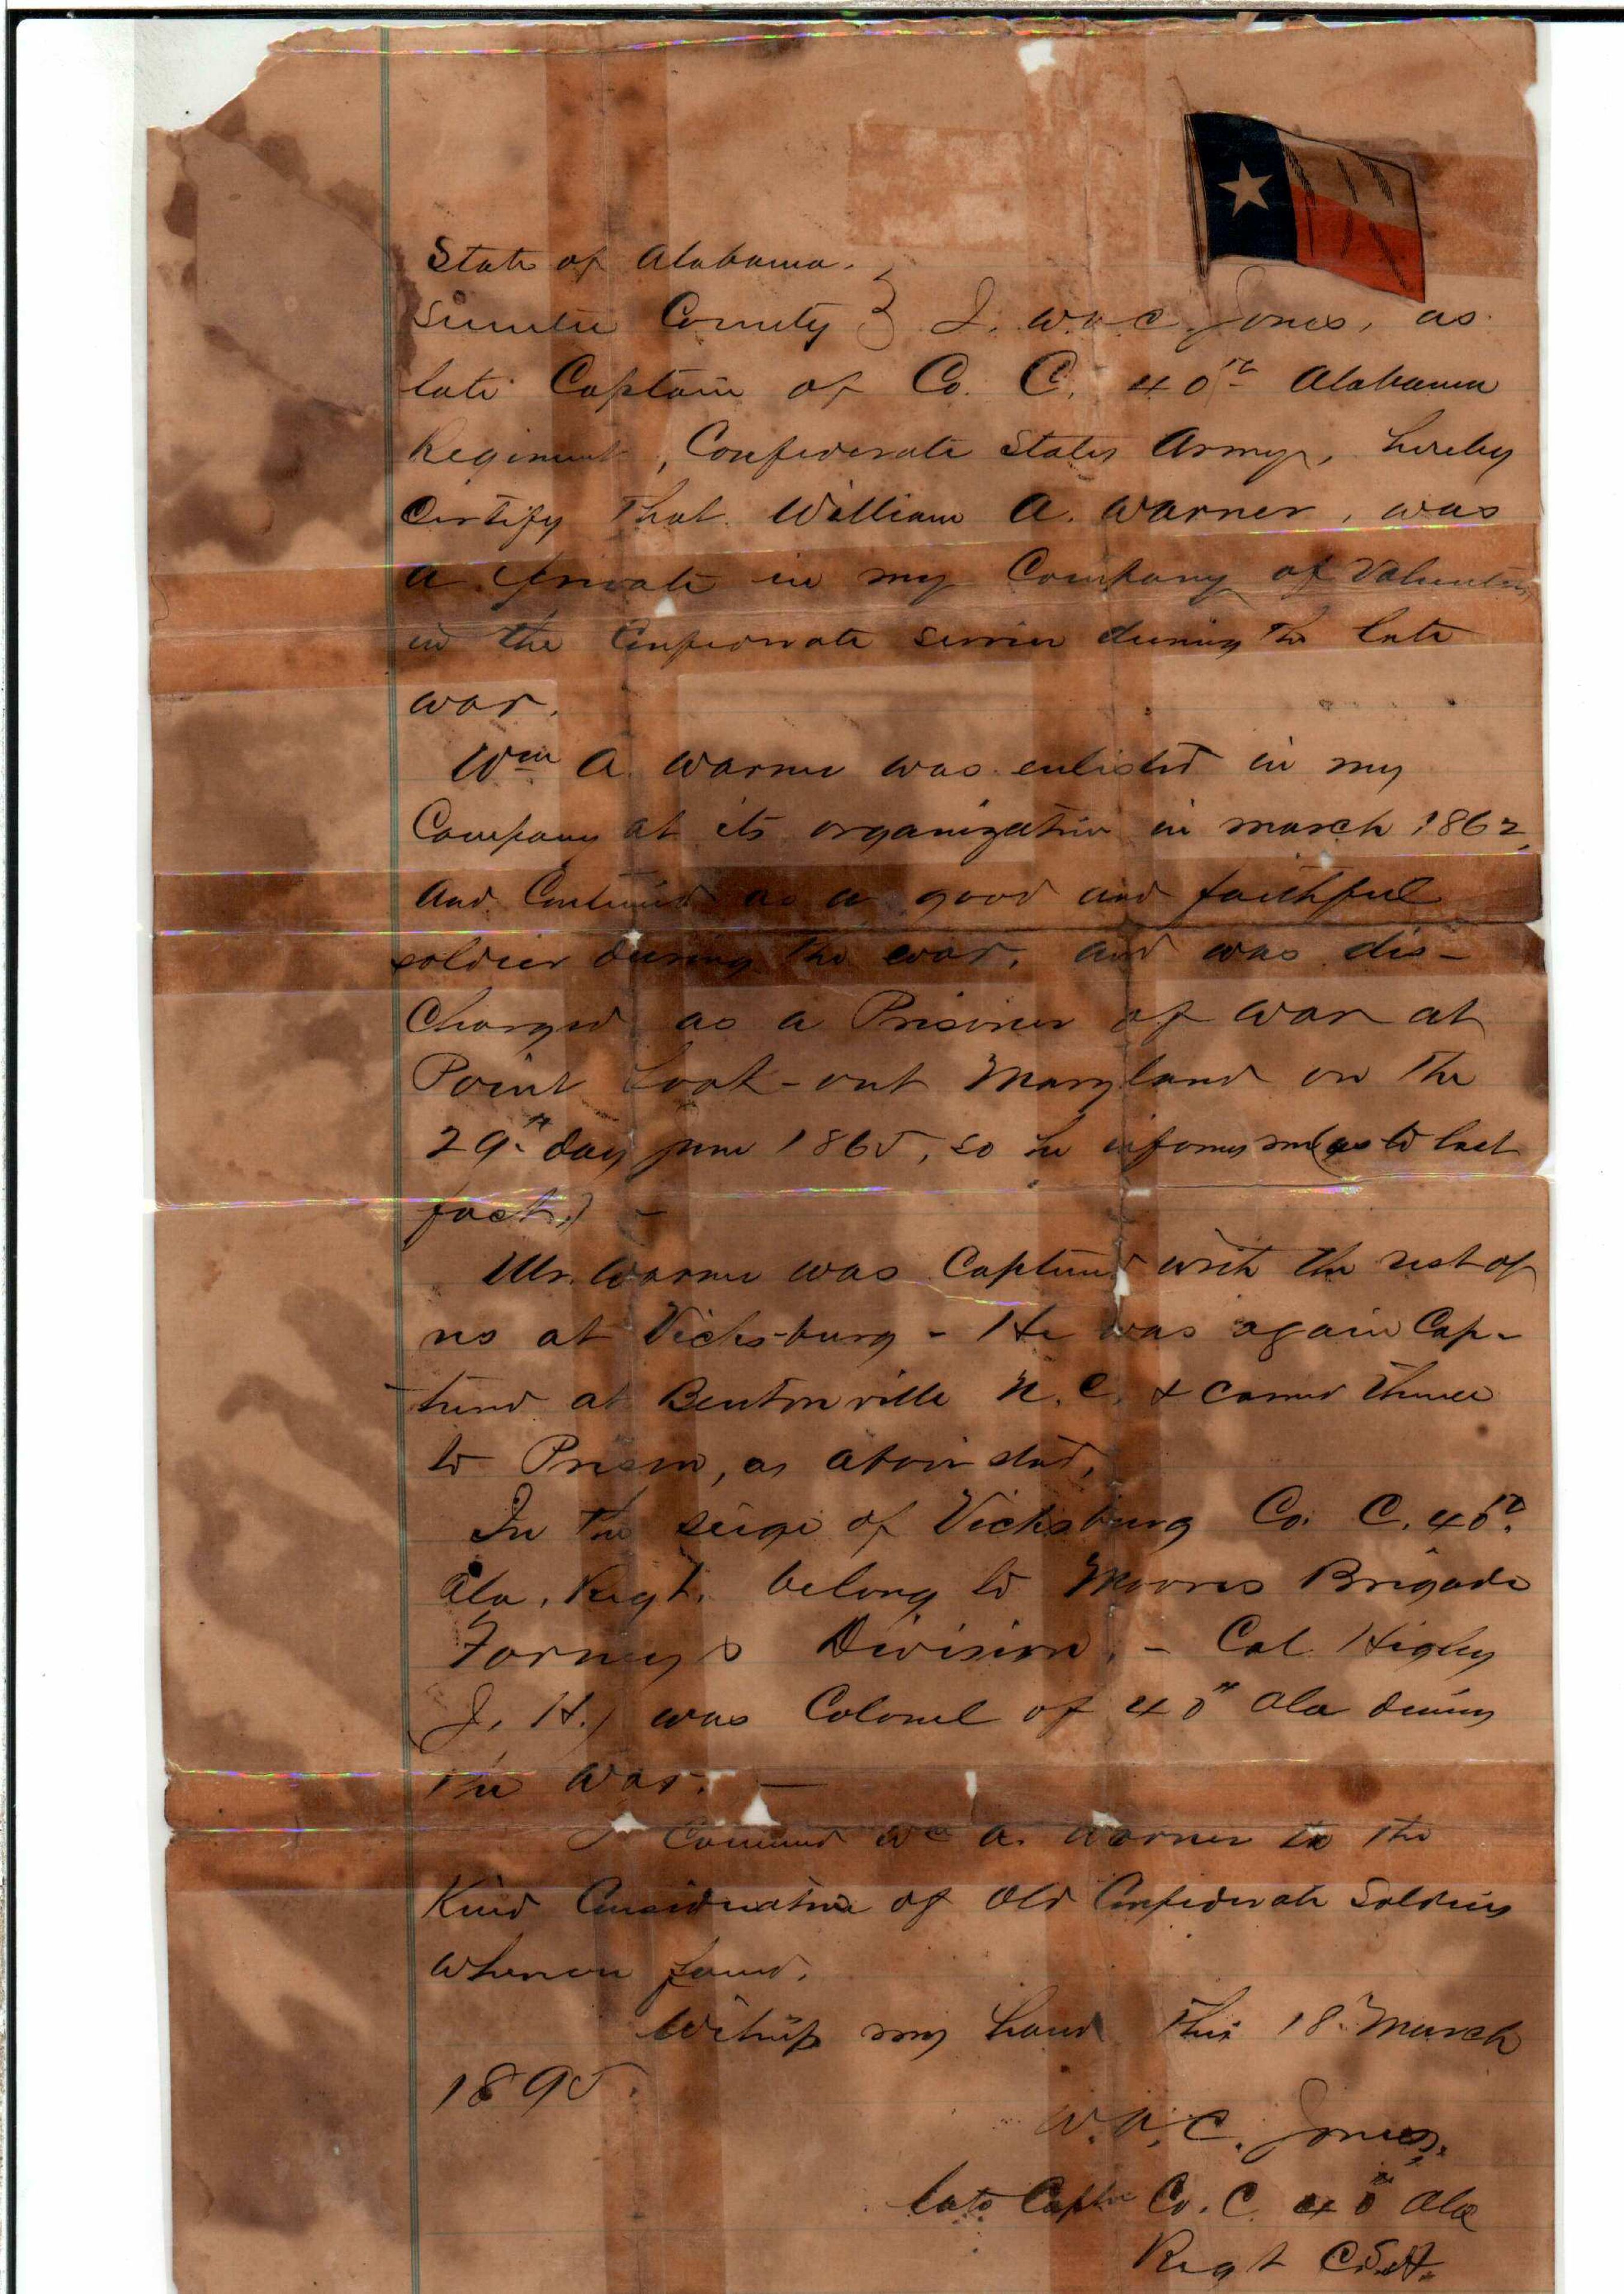 State of Alabama.
Sumter County } I, W. A. C. Jones, as
late Captain of Co. C. 40th Alabama
Regiment, Confederate States Army, hereby
Certify that William A. Warner, was
a private in my Company of Volunteers
in the Confederate service during the late
war.
Wm A. Warner was enlisted in my
Company at its organization in march 1862,
and Continued as a good and faithful
soldier during the war, and was dis-
charged as a Prisoner of war at
Point Look-out Maryland on the
29th day june 1865, so he informs me (as to last
fact.) -
Mr. Warner was Captured with the rest of
us at Vicks-burg - He was again Cap-
tured at Bentonville N. C. & carried thence
to Prison, as above stated.
In the seige of Vicksburg Co. C. 40th
Ala. Regt. belong to Moores Brigade
Forneys Division. - Col. Higley
(J. H.) was Colonel of 40th Ala during
the war. —
I Commend Wm A. Warner to the
Kind Consideration of Old Confederate Soldiers
wherever found.
Witness my hand this 18th March
1895.
W. A. C. Jones.
late Captn Co. C. 40th Ala
Regt C.S.A.